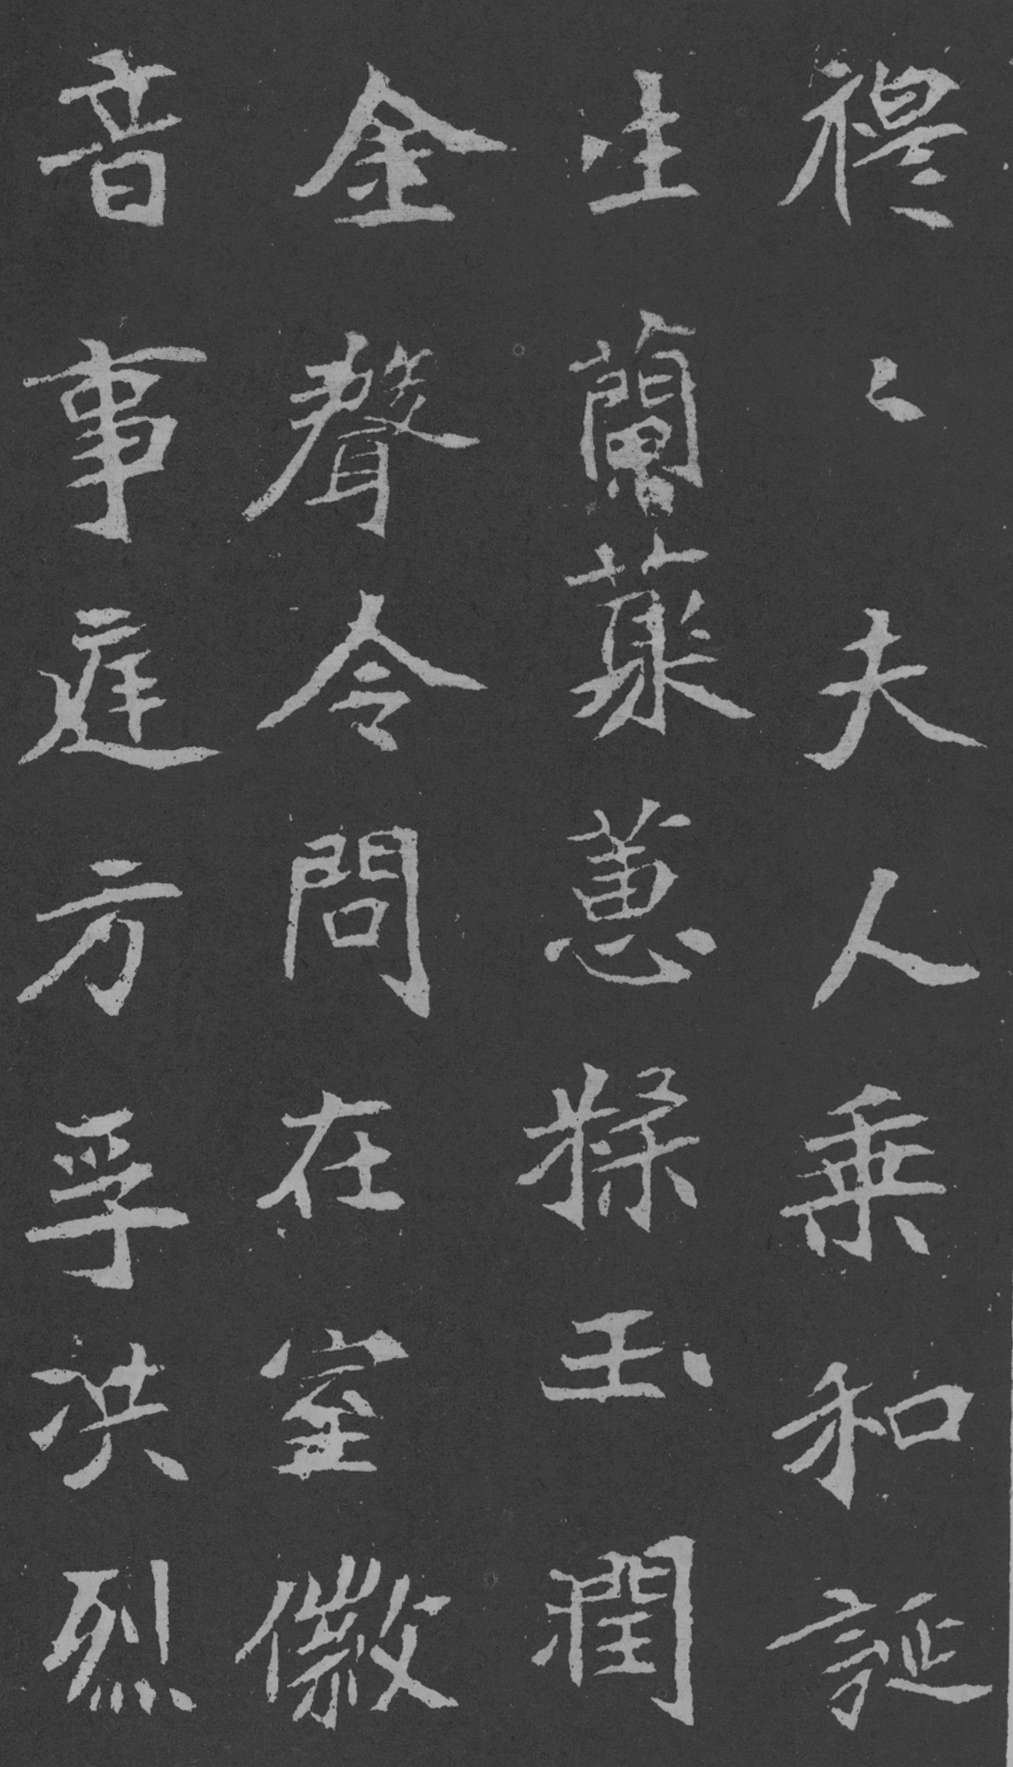 禔〻夫人乘和誕
生蘭蘂蕙糅玉潤
金聲令問在室徽
音事庭方孚洪烈